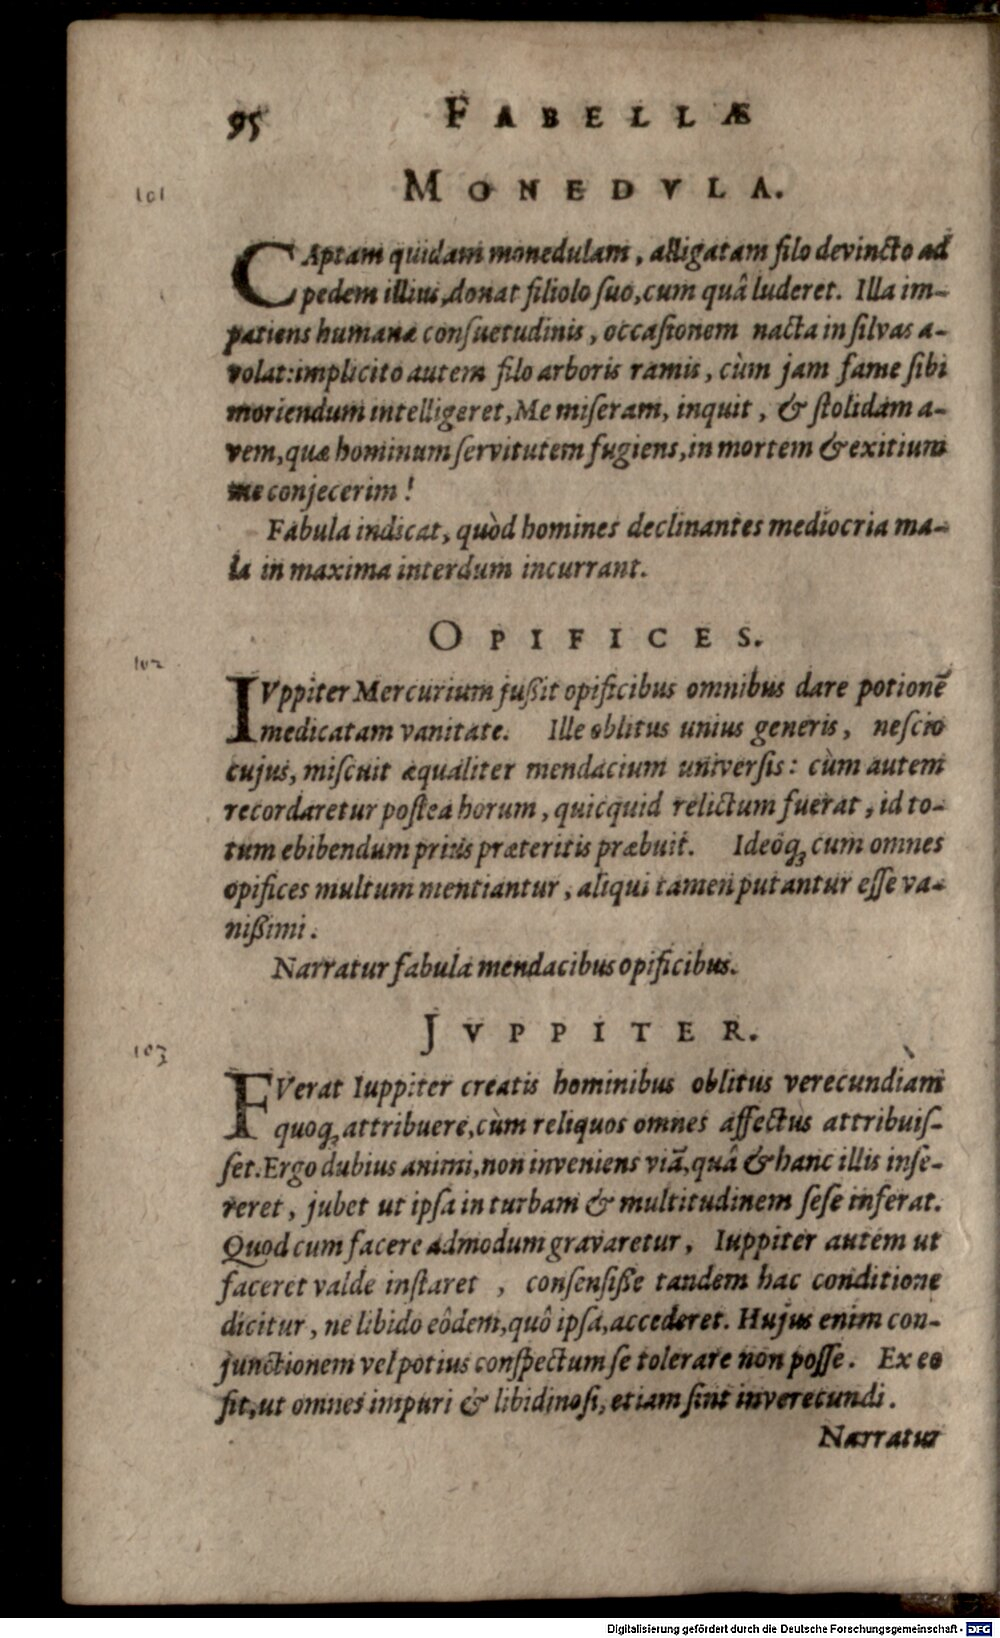 95 FABELLÆ
101
MONEDVLA.
CAptam quidam monedulam, alligatam filo devincto ad
pedem illius, donat filiolo suo, cum quâ luderet. Illa im-
patiens humanæ consuetudinis, occasionem nacta in silvas a-
volat: implicito autem filo arboris ramis, cùm jam fame sibi
moriendum intelligeret, Me miseram, inquit, & stolidam a-
vem, quæ hominum servitutem fugiens, in mortem & exitium
me conjecerim!
Fabula indicat, quòd homines declinantes mediocria ma-
la in maxima interdum incurrant.
OPIFICES.
102
IVppiter Mercurium jußit opificibus omnibus dare potionē
medicatam vanitate. Ille oblitus unius generis, nescio
cujus, miscuit æqualiter mendacium universis: cùm autem
recordaretur postea horum, quicquid relictum fuerat, id to-
tum ebibendum priùs præteritis præbuit. Ideóq; cum omnes
opifices multum mentiantur, aliqui tamen putantur esse va-
nißimi.
Narratur fabula mendacibus opificibus.
JVPPITER.
103
FVerat Iuppiter creatis hominibus oblitus verecundiam
quoq; attribuere, cùm reliquos omnes affectus attribuis-
set. Ergo dubius animi, non inveniens viā, quâ & hanc illis inse-
reret, jubet ut ipsa in turbam & multitudinem sese inferat.
Quod cum facere admodum gravaretur, Iuppiter autem ut
faceret valde instaret, consensiße tandem hac conditione
dicitur, ne libido eôdem, quô ipsa, accederet. Hujus enim con-
junctionem vel potius conspectum se tolerare non posse. Ex eo
fit, ut omnes impuri & libidinosi, etiam sint inverecundi.
Narratur
Digitalisierung gefördert durch die Deutsche Forschungsgemeinschaft - DFG